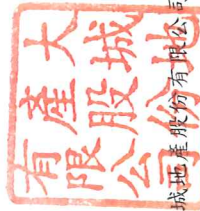 大城地
產股份
有限公司
城地產股份有限公司